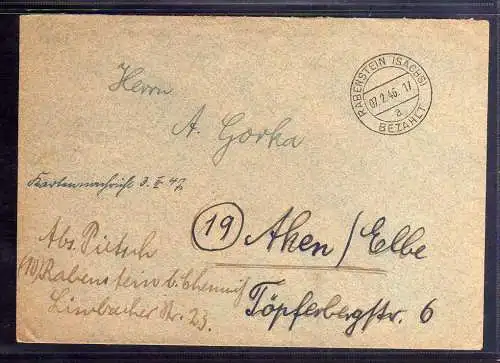 RABENSTEIN (SACHS)
07.2.46.17
a
BEZAHLT
Herrn
A. Gorka
Kartennachricht 3. II 47.
(19) Aken/Elbe
Töpferbergstr. 6
Abs. Pietsch
(10) Rabenstein b. Chemnitz
Limbacher Str. 23.